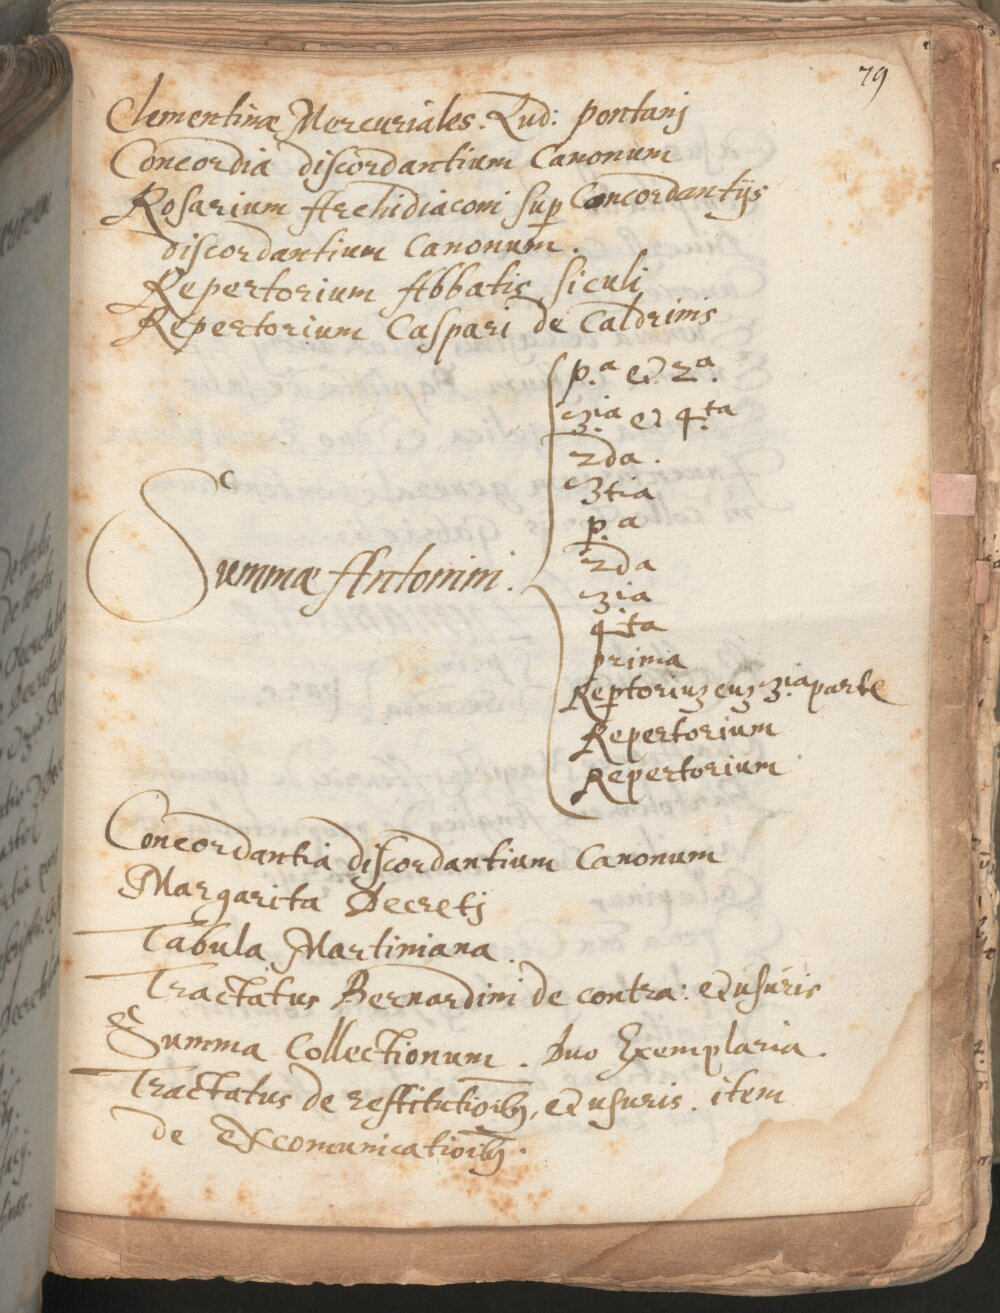 79
Clementinæ Mercuriales. Lud: pontanj
Concordia discordantium Canonum
Rosarium Archidiaconi sup Concordantijs
discordantium Canonum.
Repertorium Abbatis siculi
Repertorium Caspari de Caldrinis
p.ª et 2ª.
3.ia et 4.ta
2da.
3tia
p.a
2da
3ia
4ta
prima
Summæ Antonini.
Reptoriuz cuz 3.ia parte
Repertorium
Repertorium
Concordantia discordantium Canonum
Margarita Decretj
Tabula Martiniana.
Tractatus Bernardini de contra: et usuris
Summa Collectionum. Duo Exemplaria.
Tractatus de restitutioibꝫ, et usuris. item
de excomunicatioibꝫ.